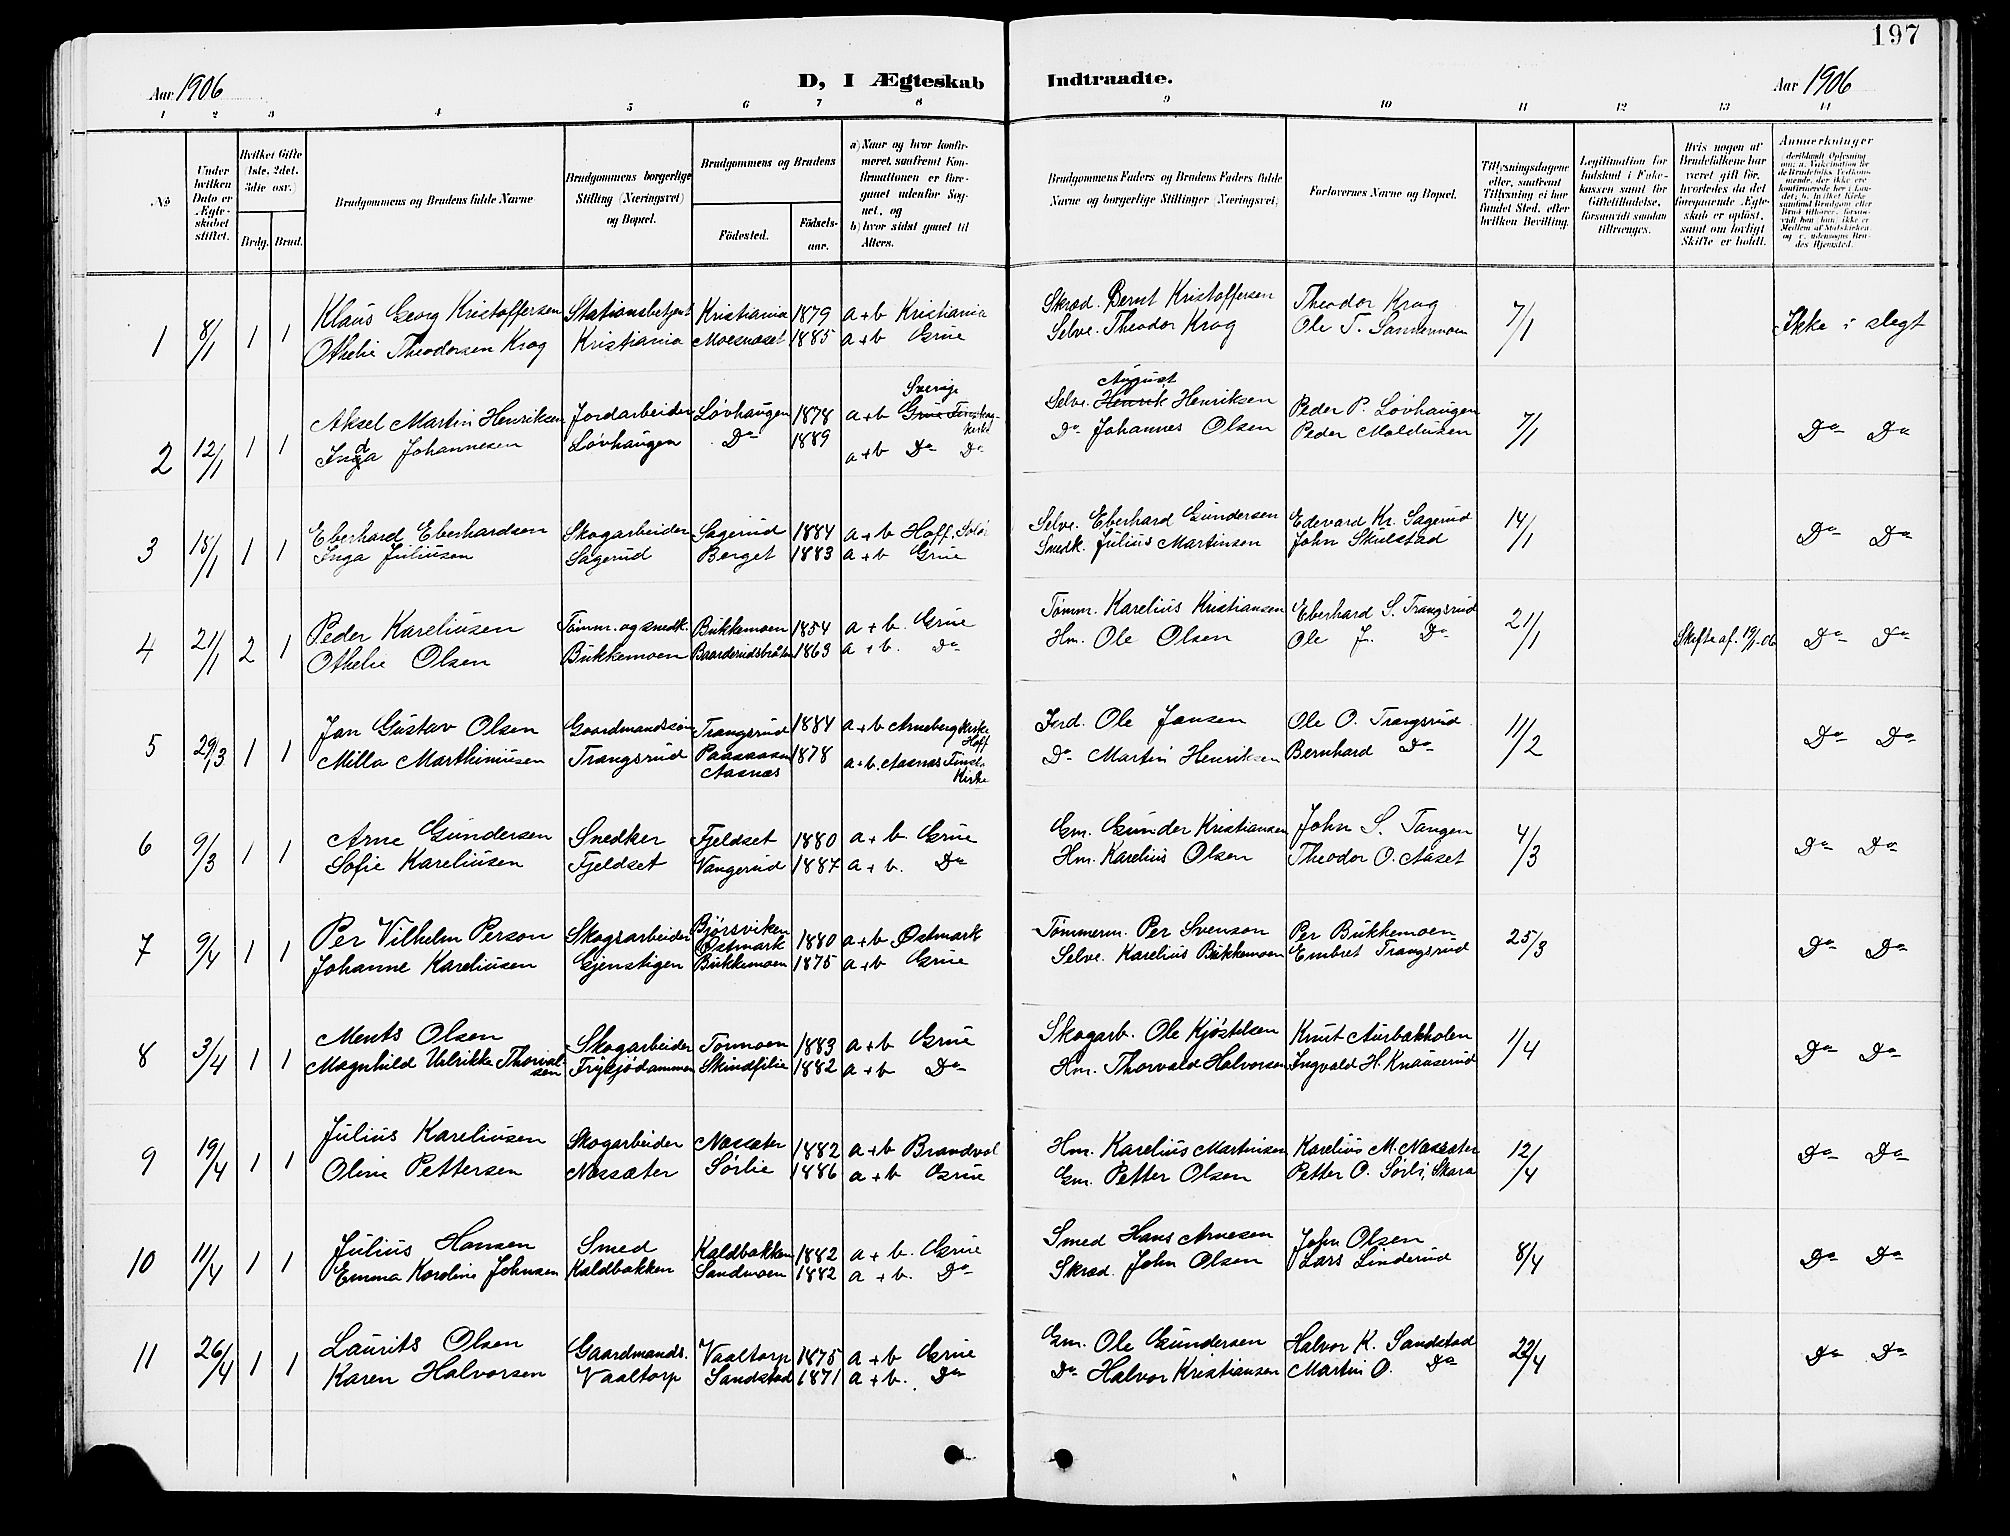 197
Aar 1906
D, I Ægteskab Indtraadte.
Aar 1906
1 2 3 4 5 6 7 8 9 10 11 12 13 14
No
Under hvilken Dato er Ægteskabet stiftet.
Hvilket Gifte (1ste, 2det, 3die osv.)
Brdg. Brud.
Brudgommens og Brudens fulde Navne
Brudgommens borgerlige Stilling (Næringsvei) og Bopæl.
Brudgommens og Brudens
Födested.
Födselsaar.
a) Naar og hvor konfirmeret, saafremt Konfirmationen er foregaaet udenfor Sognet, og
b) hvor sidst gaaet til Alters.
Brudgommens Faders og Brudens Faders fulde Navne og borgerlige Stillinger (Næringsvei)
Forlovernes Navne og Bopæl.
Tillysningsdagene eller, saafremt Tillysning ei har fundet Sted, efter hvilken Bevilling.
Legitimation for Indskud i Enkekassen samt for Giftetilladelse, forsaavidt saadan tiltrænges.
Hvis nogen af Brudefolkene har været gift før, hvorledes da det foregaaende Ægteskab er opløst, samt om lovligt Skifte er holdt.
Anmerkninger
1 8/1 1 1 Klaus Georg Kristoffersen Stationsbetjent Kristiania 1879 a + b Kristiania Skræd. Bernt Kristoffersen Theodor Krog 7/1 Ikke i slegt
Othelie Theodorsen Krog Kristiania Moesnæset 1885 a + b Grue Selve. Theodor Krog Ole T. Sannermoen
2 12/1 1 1 Aksel Martin Henriksen Jordarbeider Løvhaugen 1878 a + b Sverige Grue Finskog kirke Selve. August Henrik Henriksen Peder P. Løvhaugen 7/1 Do Do
Inga d Johannesen Løvhaugen Do 1889 a + b Do Do Do Johannes Olsen Peder Moldusen
3 18/1 1 1 Eberhard Eberhardsen Skogarbeider Sagerud 1884 a + b Hoff, Solør Selve. Eberhard Gundersen Edevard Kr. Sagerud 14/1 Do Do
Inga Juliusen Sagerud Berget 1883 a + b Grue Snedk. Julius Martinsen John Skulstad
4 21/1 2 1 Peder Kareliusen Tømm. og snedk. Bukkemoen 1854 a + b. Grue Tømm. Karelius Kristiansen Eberhard S. Trangsrud 21/1 Skifte af. 19/1-06 Do Do
Othelie Olsen Bukkemoen Baarderudsbråten 1863 a + b. Do Hm. Ole Olsen Ole J. Do
5 29/3 1 1 Jan Gustav Olsen Gaardmandssøn Trangsrud 1884 a + b Arneberg Kirke Hoff Ole Jansen Ole O. Trangsrud 11/2 Do Do
Milla Marthinusen Trangsrud Aasnæs 1878 a + b. Aasnæs Finsk. Kirke Do Martin Henriksen Bernhard Do
6 9/3 1 1 Arne Gundersen Snedker Fjeldset 1880 a + b Grue Gm. Gunder Kristiansen John S. Tangen 4/3 Do Do
Sofie Kareliusen Fjeldset Vangerud 1887 a + b. Do Hm. Karelius Olsen Theodor O. Aaset
7 9/4 1 1 Per Vilhelm Person Skogsarbeider Bjørsviken Østmark 1880 a + b Østmark Tømmerm. Per Svenson Per Bukkemoen 25/3 Do Do
Johanne Kareliusen Gjenstigen Bukkemoen 1875 a + b Grue Selve. Karelius Bukkemoen Embret Trangsrud
8 3/4 1 1 Ments Olsen Skogarbeider Tormoen 1883 a + b Grue Skogarb. Ole Kjøstelsen Knut Aurbakholen 1/4 Do Do
Magnhild Ulrikke Thorvalsen Frysjødammen Skindfilie 1882 a + b Do Hm. Thorvald Halvorsen Ingvald H. Knauserud
9 19/4 1 1 Julius Kareliusen Skogarbeider Næssæter 1882 a + b Brandval Hm. Karelius Martinsen Karelius M. Næssæter 12/4 Do Do
Oline Pettersen Næssæter Sørlie 1886 a + b Grue Gm. Petter Olsen Petter O. Sørli, Skara
10 11/4 1 1 Julius Hansen Smed Kaldbakken 1882 a + b. Grue Smed Hans Arnesen John Olsen 8/4 Do Do
Emma Karoline Johnsen Kaldbakken Sandmoen 1882 a + b. Do Skræd. John Olsen Lars Linderud
11 26/4 1 1 Laurits Olsen Gaardmands. Vaaltorp 1875 a + b Grue Gm. Ole Gundersen Halvor K. Sandstad 22/4 Do Do
Karen Halvorsen Vaaltorp Sandstad 1871 a + b. Do Do Halvor Kristiansen Martin O. Do